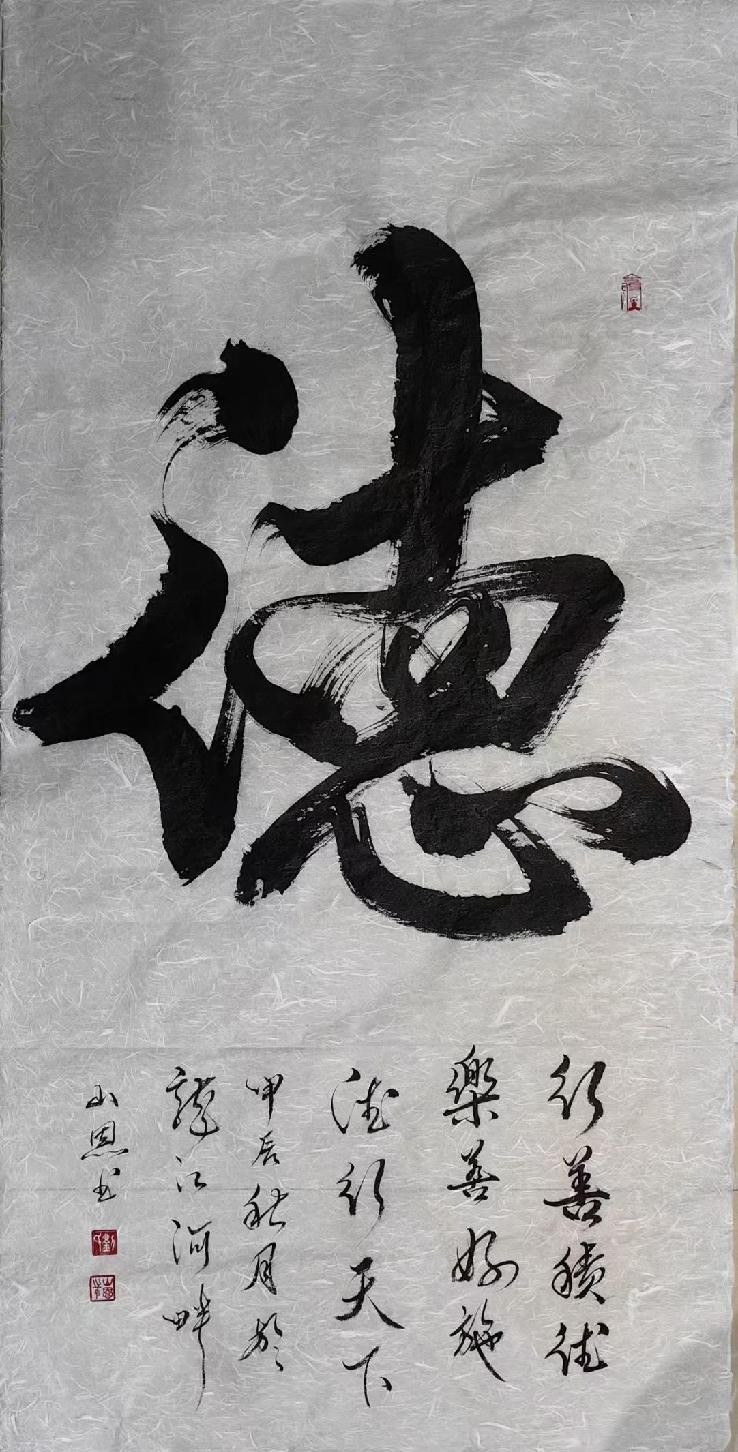 德
行善積德
樂善好施
德行天下
甲辰秋月於
龍江河畔
山恩书